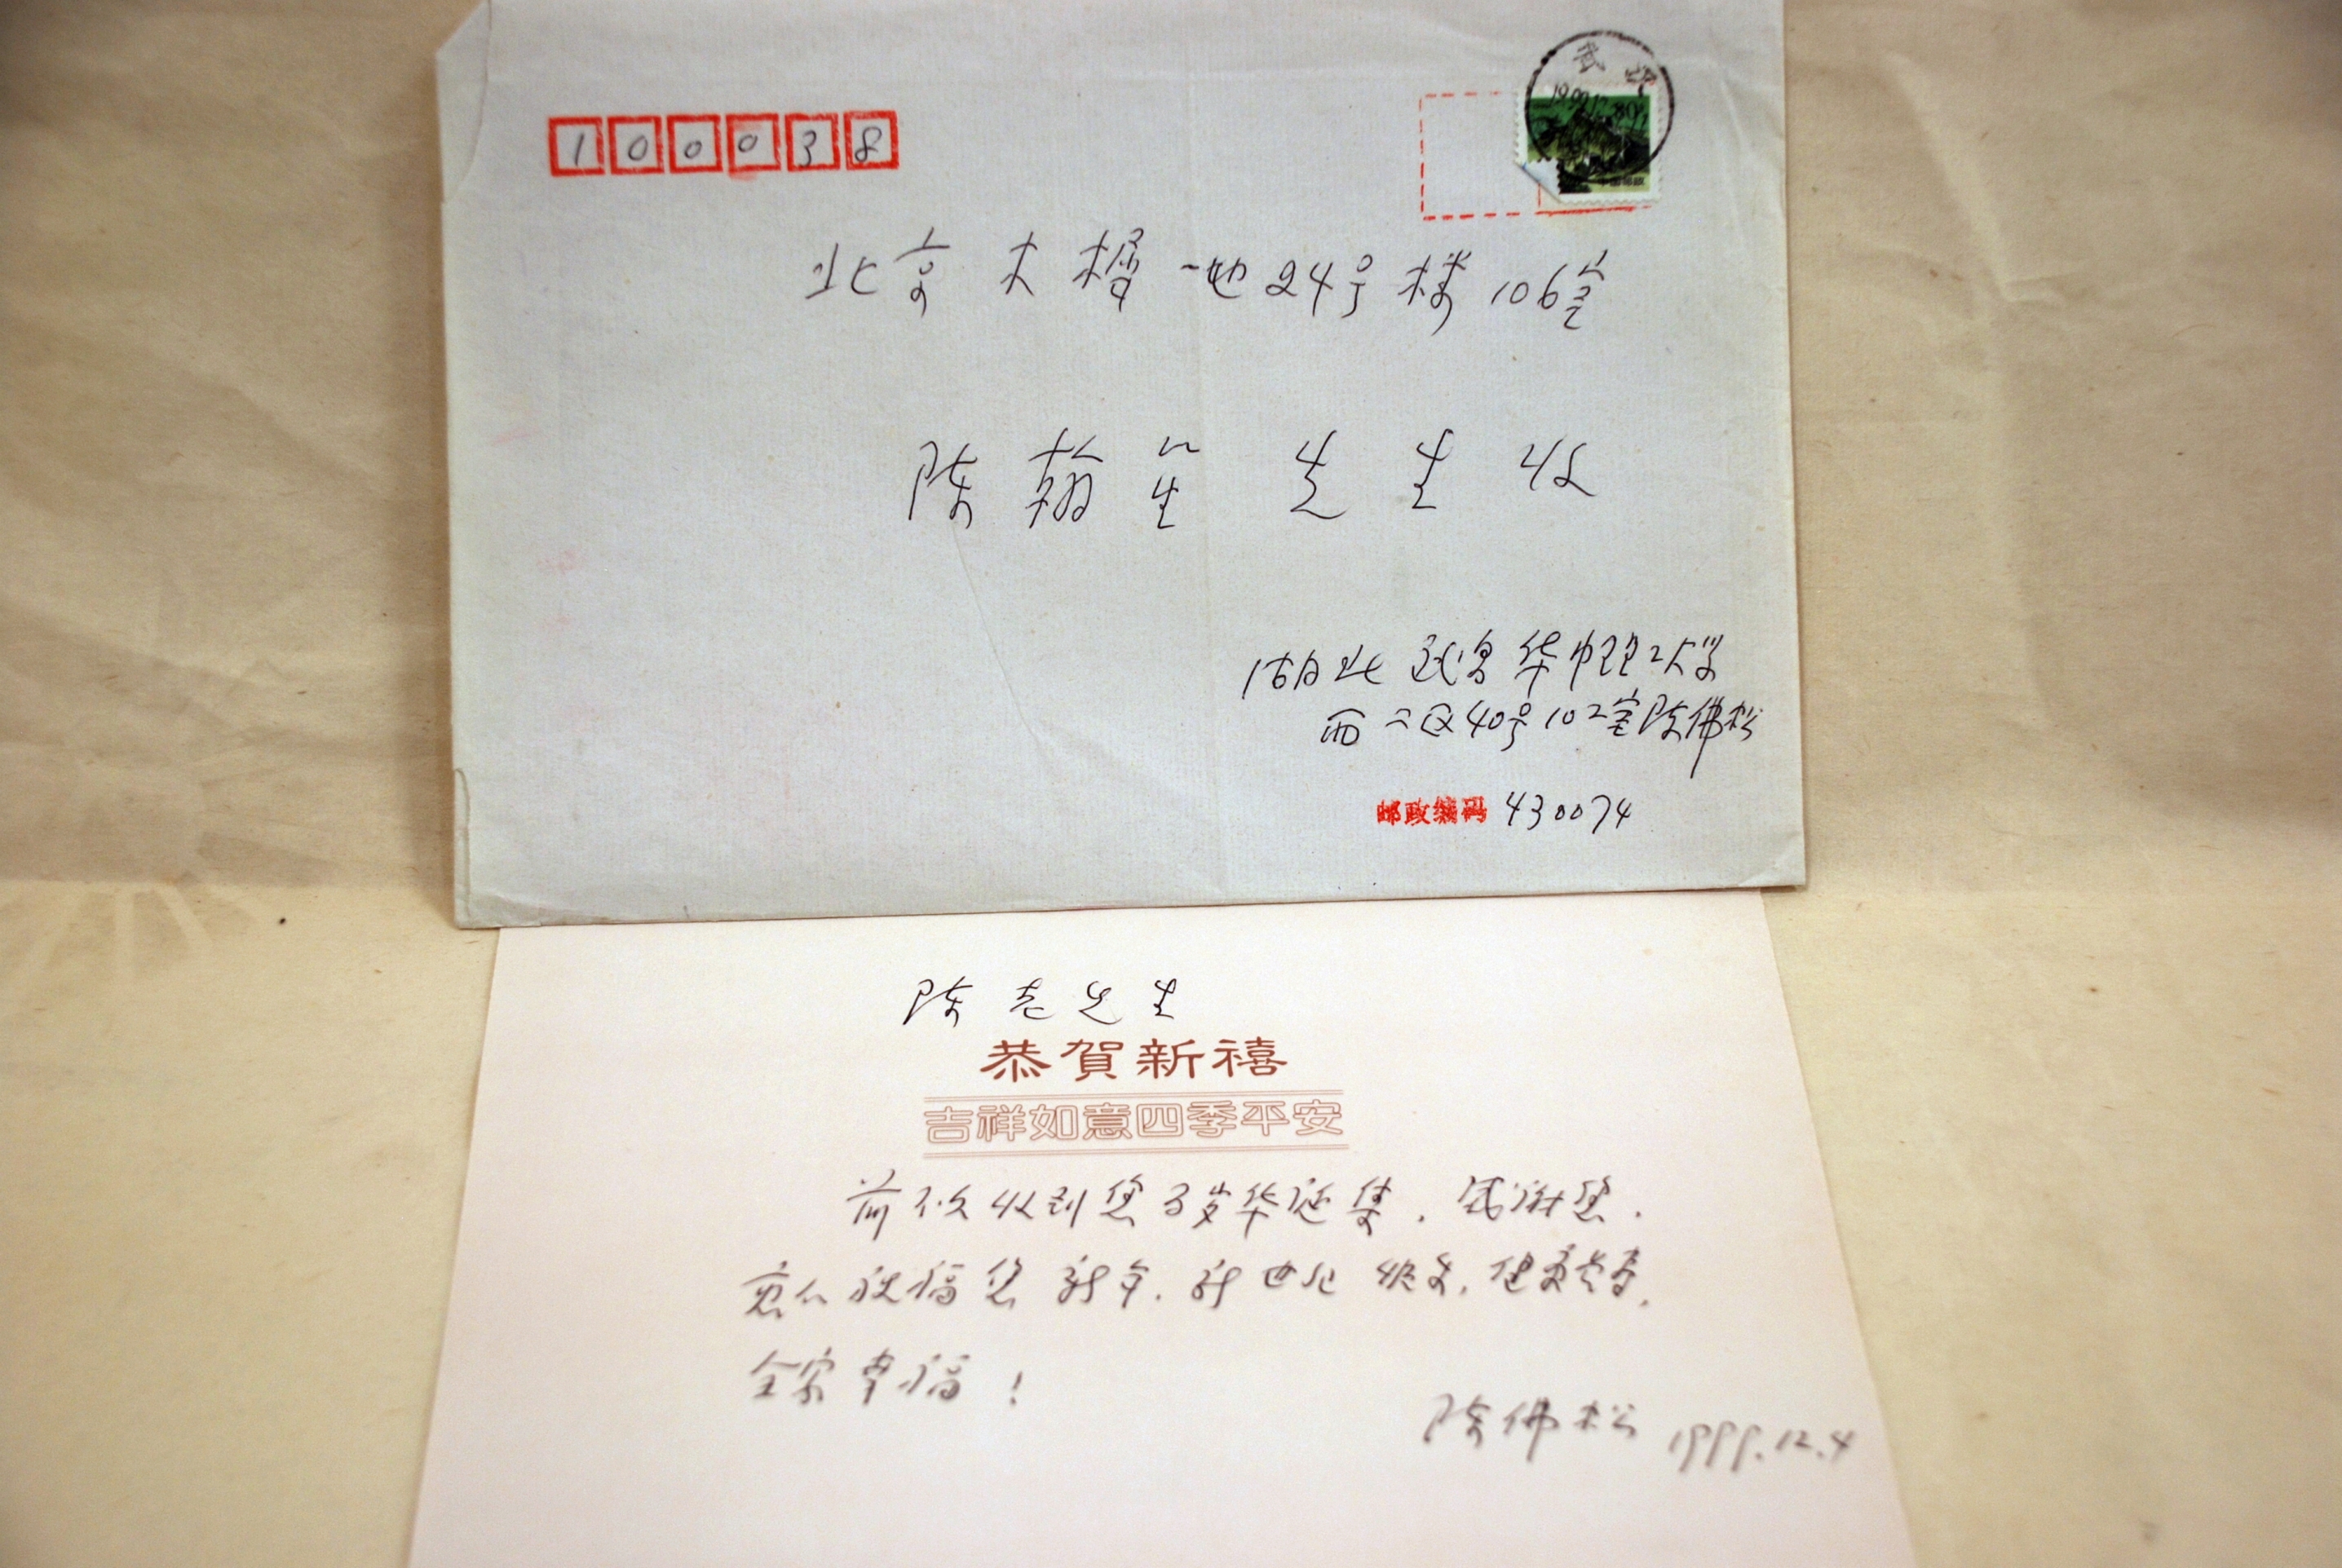 武汉
1999.12
中国邮政
100038
北京木樨地24号楼106室
陈翰笙先生收
湖北武汉华中理工大学
西二区40号102室陈佛松
邮政编码 430074
陈老先生
恭賀新禧
吉祥如意四季平安
前不久收到您 岁华诞集，感谢您。
衷心祝福您新年、新世纪快乐，健康长寿，
全家幸福！
陈佛松 1999.12.4